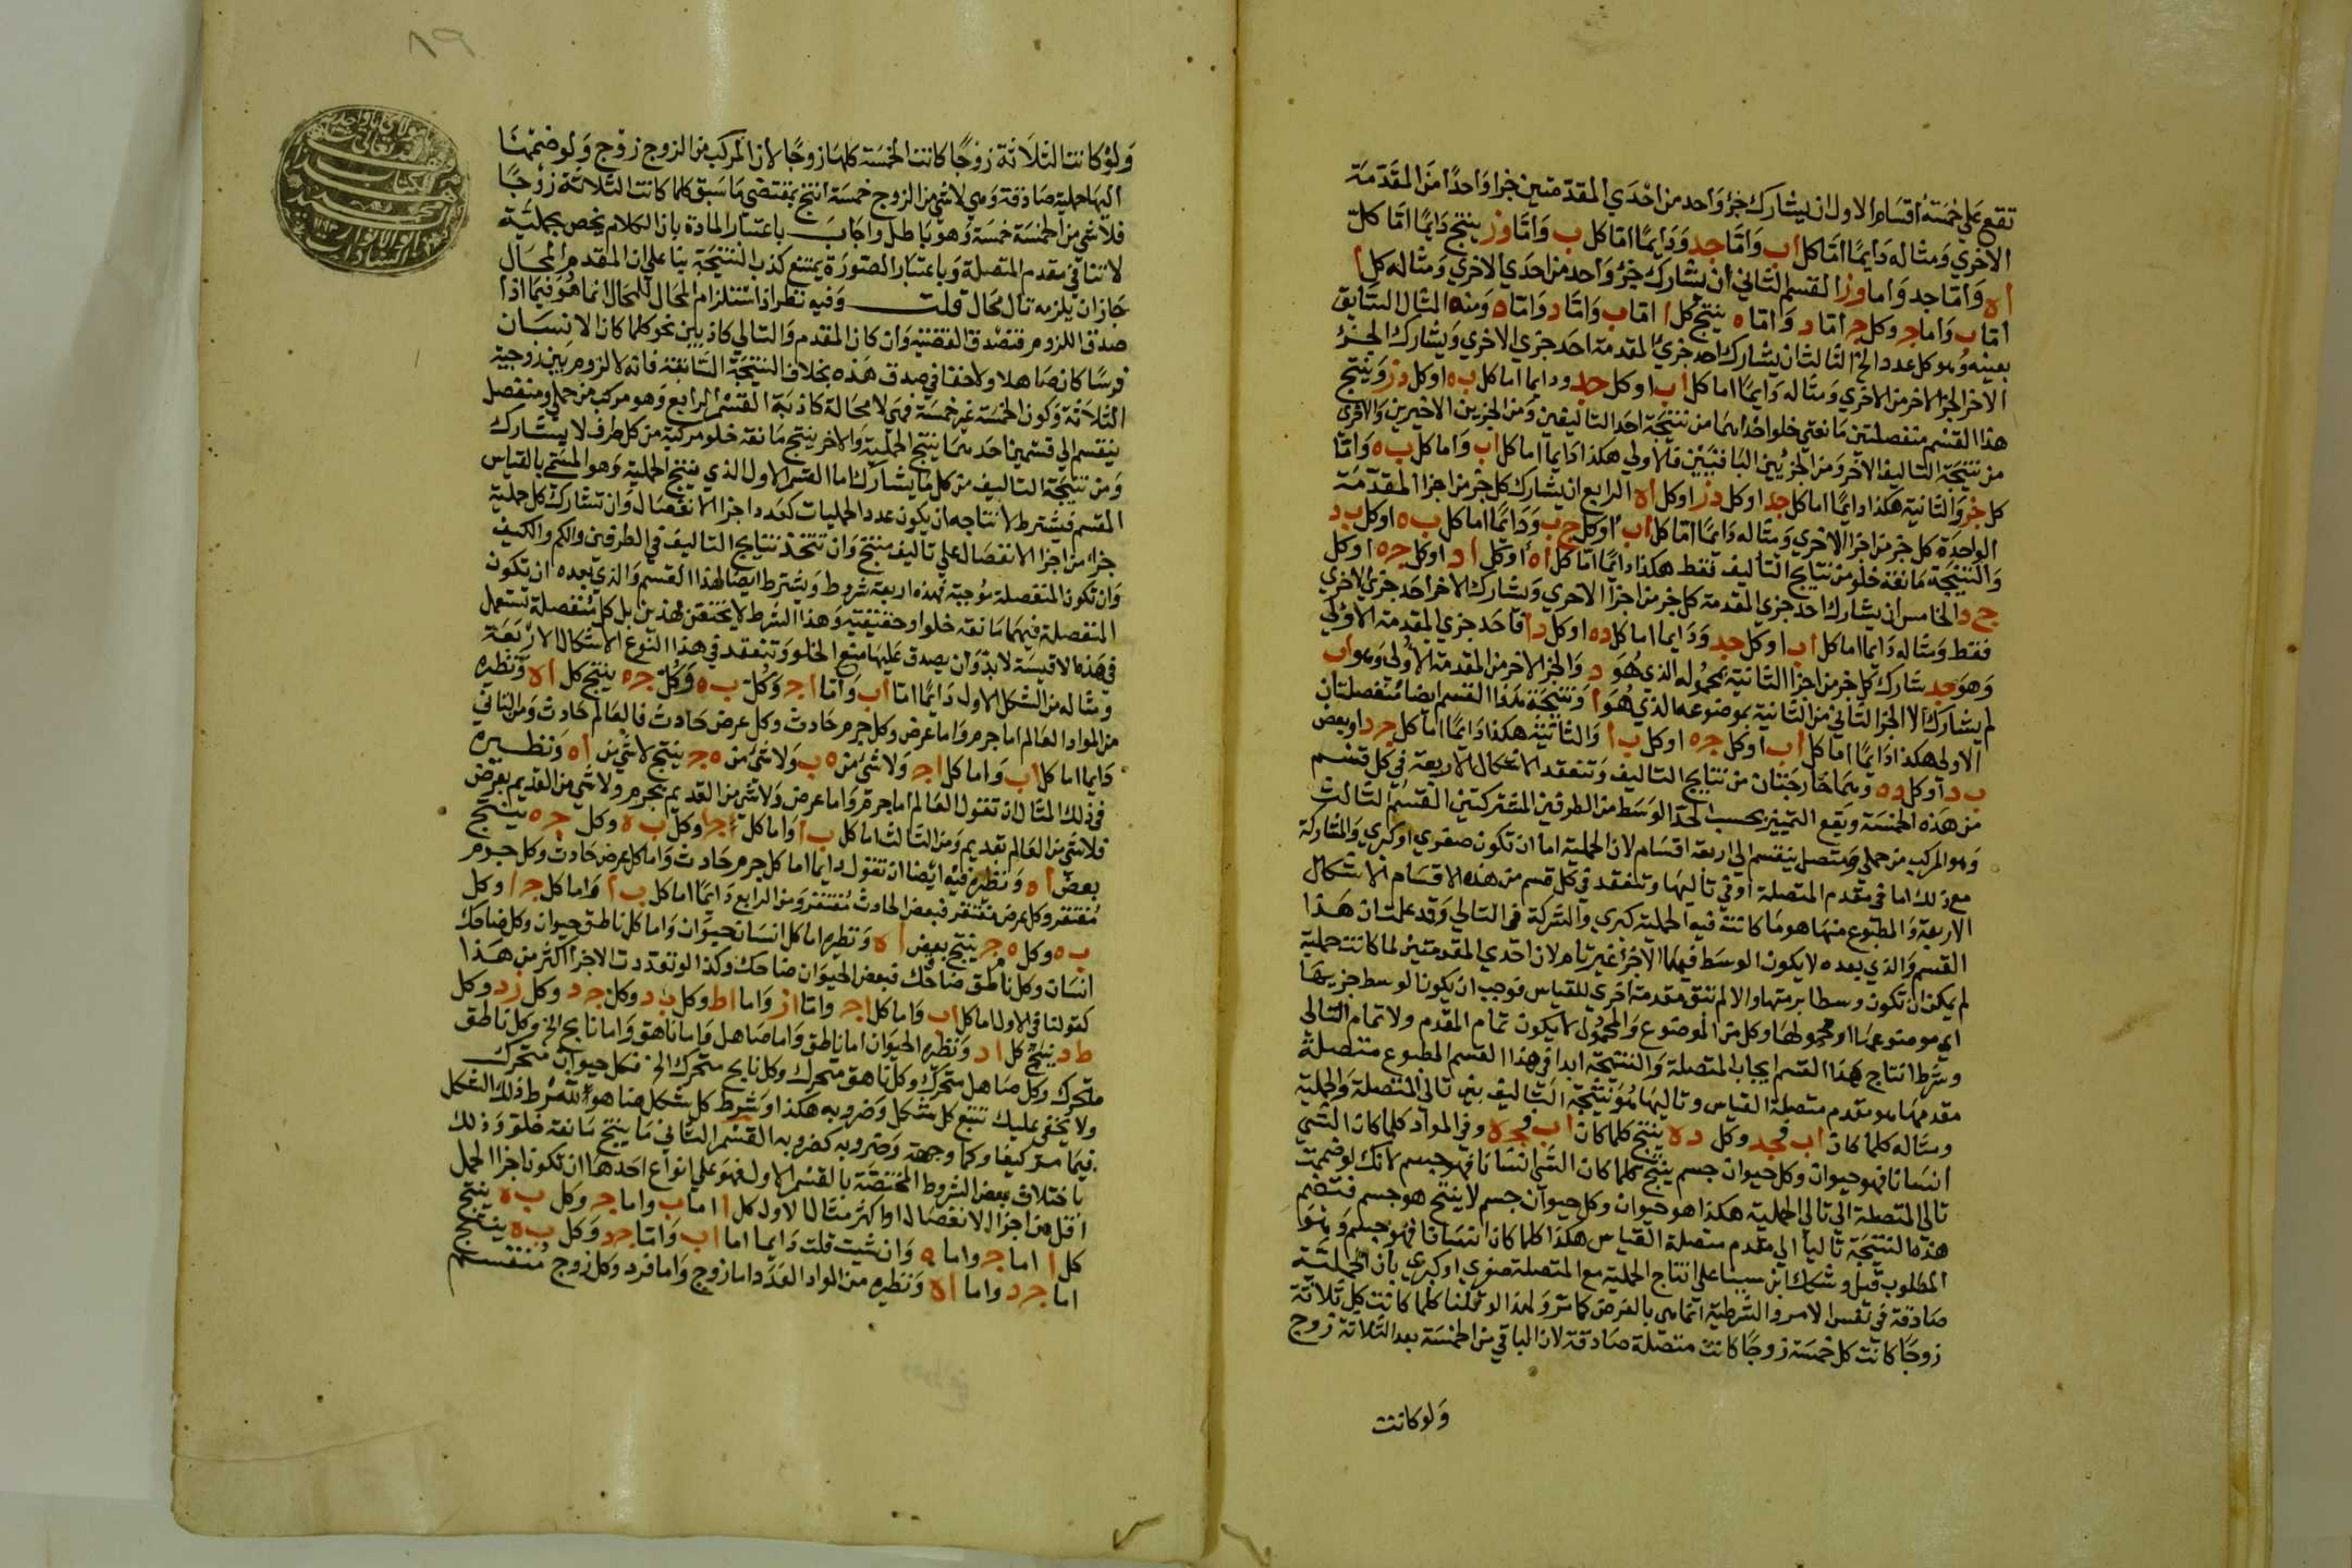 تقع على خمسة اقسام الاول ان يشارك جزؤ واحد من احدي المقدمتين جزا واحدا من المقدمة
الاخري ومثاله دايما اما كل اب واما جد ودايما اما كل ب واما وز ينتج دايما اما كل
اه واما جد واما وز القسم الثاني ان يشارك جزؤ واحد من احدي الاخري ومثاله كل ا
اما ب واما ج وكل ج اما د واما ه ينتج كل ا اما ب واما د واما ه ومنه المثال السابق
بعينه وهو كل عدد الخ الثالث ان يشارك احد جزي المقدمة احد جزي الاخري ويشارك الجزؤ
الاخر الجزا الاخر من الاخري ومثاله دايما اما كل اب او كل جد ودايما اما كل به او كل دز وينتج
هذا القسم منفصلتين مانعتي خلو احداهما من نتيجة احد التاليفين ومن الجزين الاخيرين والاخرى
من نتيجة التاليف الاخر ومن الجزيين الباقيين فالاولي هكذا دايما اما كل اب واما كل به واما
كل جز والثانية هكذا دايما اما كل جد او كل دز او كل اه الرابع ان يشارك كل جز من اجزا المقدمة
الواحدة كل جز من اجزا الاخري ومثاله دايما اما كل اب او كل ج ب ودايما اما كل به او كل بد
والنتيجة مانعة خلو من نتايج التاليف فقط هكذا دايما اما كل اه او كل اد او كل جه او كل
ج د الخامس ان يشارك احد جزي المقدمة كل جز من اجزا الاخري ويشارك الاخر احد جزي الاخري
فقط ومثاله دايما اما كل اب او كل جد ودايما اما كل ده او كل دا فاحد جزي المقدمة الاولي
وهو جد شارك كل جز من اجزا الثانية بمحموله الذي هو د والجز الاخر من المقدمة الاولي وهو اب
لم يشارك الا الجزا الثاني من الثانية بموضوعه الذي هو ا ونتيجة هذا القسم ايضا منفصلتان
الاولى هكذا دايما اما كل اب او كل جه او كل ب ا والثانية هكذا دايما اما كل جد او بعض
ب د او كل ده وهما خارجتان من نتايج التاليف وتنعقد الاشكال الاربعة في كل قسم
من هذه الخمسة ويقع التمييز بحسب الحد الوسط من الطرفين المشتركتين القسم الثالث
وهو المركب من حملي ومتصل ينقسم الي اربعة اقسام لان الحملية اما ان تكون صغري او كبري والمشاركة
مع ذلك اما في مقدم المتصلة او في تاليها وتنعقد في كل قسم من هذه الاقسام الاشكال
الاربعة والمطبوع منها هو ما كانت فيه الحملية كبري والشركة في التالي وقد علمت ان هذا
القسم والذي بعده لا يكون الوسط فيهما الا جزا غير تام لان احدي المقدمتين لما كانت حملية
لم يمكن ان تكون وسطا برمتها والا لم تبق مقدمة اخري للقياس فوجب ان يكون الوسط جزيها
اي موضوعها او محمولها وكل من الموضوع والمحمول لا يكون تمام المقدم ولا تمام التالي
وشرط انتاج هذا القسم ايجاب المتصلة والنتيجة ابدا في هذا القسم المطبوع متصلة
مقدمها هو مقدم متصلة القياس وتاليها هو نتيجة التاليف بين تالي المتصلة والحملية
ومثاله كلما كان اب فجد وكل ده ينتج كلما كان اب فجه وفي المواد كلما كان الشي
انسانا فهو حيوان وكل حيوان جسم ينتج كلما كان الشي انسانا فهو جسم لانك لو ضممت
تالي المتصلة الي تالي الحملية هكذا هو حيوان وكل حيوان جسم لا ينتج هو جسم فتضم
هذه النتيجة تاليا الي مقدم متصلة القياس هكذا كلما كان انسانا فهو جسم وهو
المطلوب قيل وشكك ابن سينا علي انتاج الحملية مع المتصلة صغري او كبري بان الحملية
صادقة في نفس الامر والشرطية انما هي بالفرض كما مر ولهذا لو قلنا كلما كانت كل ثلاثة
زوجا كانت كل خمسة زوجا كانت متصلة صادقة لان الباقي من الخمسة بعد الثلاثة زوج
ولو كانت
٨٩
ولو كانت الثلاثة زوجا كانت الخمسة كلها زوجا لان المركب من الزوج زوج ولو ضممنا
اليها حملية صادقة وهي لا شي من الزوج خمسة انتج بمقتضي ما سبق كلما كانت الثلاثة زوجا
فلا شي من الخمسة خمسة وهو باطل واجاب باعتبار المادة بان الكلام يخص بحملية
لا تنافي مقدم المتصلة وباعتبار الصورة يمتنع كذب النتيجة بنا علي ان المقدم المحال
جاز ان يلزمه تال محال قلت وفيه نظر اذ استلزام المحال للمحال انما هو فيما اذا
صدق اللزوم فتصدق القضية وان كان المقدم والتالي كاذبين نحو كلما كان الانسان
فرسا كان صاهلا ولا خفا في صدق هذه بخلاف النتيجة السابقة فانه لا لزوم بين زوجية
الثلاثة وكون الخمسة غير خمسة فهي لا محالة كاذبة القسم الرابع وهو مركب من حملي ومنفصل
ينقسم الي قسمين احدهما ينتج الحملية والاخر ينتج مانعة خلو مركبة من كل طرف لا يشارك
ومن نتيجة التاليف من كل ما يشارك اما القسم الاول الذي ينتج الحملية وهو المسمى بالقياس
المقسم فيشترط لانتاجه ان يكون عدد الحمليات كعدد اجزا الانفصال وان تشارك كل حملية
جزا من اجزا الانفصال علي تاليف منتج وان تتحد نتايج التاليف في الطرفين والكم والكيف
وان تكون المنفصلة موجبة فهذه اربعة شروط ويشترط ايضا لهذا القسم والذي بعده ان تكون
المنفصلة فيهما مانعة خلو او حقيقية وهذا الشرط لا يختص بهذين بل كل منفصلة تستعمل
في هذه الاقيسة لا بد وان يصدق عليها منع الخلو وتنعقد في هذا النوع الاشكال الاربعة
ومثاله من الشكل الاول دايما اما اب واما اج وكل ب ه وكل جه ينتج كل اه ونظيره
من المواد العالم اما جرم واما عرض وكل جرم حادث وكل عرض حادث فالعالم حادث ومن الثاني
دايما اما كل اب واما كل اج ولا شي من ه ب ولا شي من ه ج ينتج لا شي من اه ونظيره
في ذلك المثال ان تقول العالم اما جرم واما عرض ولا شي من القديم بجرم ولا شي من القديم بعرض
فلا شي من العالم بقديم ومن الثالث اما كل ب ا واما كل ج ا وكل ب ه وكل جه ينتج
بعض اه ونظيره فيه ايضا ان تقول دايما اما كل جرم حادث واما كل عرض حادث وكل جرم
مفتقر وكل عرض مفتقر فبعض الحادث مفتقر ومن الرابع دايما اما كل ب ا واما كل ج ا وكل
ب ه وكل ه ج ينتج بعض اه ونظيره اما كل انسان حيوان واما كل ناطق حيوان وكل ضاحك
انسان وكل ناطق ضاحك فبعض الحيوان ضاحك وكذا لو تعددت الاجزا اكثر من هذا
كقولنا في الاول اما كل اب واما كل اج واما از واما اط وكل ب د وكل ج د وكل زد وكل
ط د ينتج كل اد ونظيره الحيوان اما ناطق واما صاهل واما ناهق واما نابح الخ وكل ناطق
متحرك وكل صاهل متحرك وكل ناهق متحرك وكل نابح متحرك الخ فكل حيوان متحرك
ولا يخفي عليك تتبع كل شكل وضروبه هكذا وشرط كل شكل هنا هو شرط ذلك الشكل
فيما مر كيفا وكما وجهة وضروبه كضروبه القسم الثاني ما ينتج مانعة خلو وذلك
باختلاف بعض الشروط المختصة بالقسم الاول فهو علي انواع احدها ان تكون اجزا الحمل
اقل من اجزا الانفصال او اكثر مثال الاول كل ا اما ب واما ج وكل ب ه ينتج
كل ا اما ج واما ه وان شيت قلت دايما اما اب واما جد وكل ب ه ينتج
اما جد واما اه ونظيره من المواد العدد اما زوج واما فرد وكل زوج منقسم